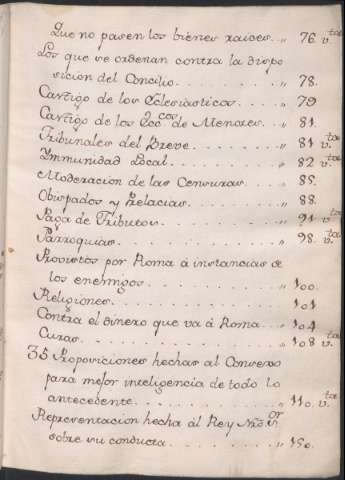 Que no pasen los bienes raices.. „ 76. v.ta
Los que se ordenan contra la dispo
sicion del Concilio. . . . . . . . „ 78.
Castigo de los Eclesiasticos. . . . „ 79
Castigo de los Ecc.cos de Menores. . . „ 81.
Tribunales del Breve. . . . . . . „ 81 v.ta
Ymmunidad Local. . . . . . . . „ 82 v.ta
Moderacion de las Censuras. . . . „ 85.
Obispados y Prelacias. . . . . . . „ 88.
Paga de Tributos. . . . . . . . . „ 91 v.ta
Parroquias. . . . . . . . . . . . „ 98. v.ta
Provistos por Roma á instancias de
los enemigos. . . . . . . . . . . „ 100.
Religiones. . . . . . . . . . . . „ 101
Contra el dinero que va á Roma. . . „ 104
Curas. . . . . . . . . . . . . . „ 108 v.ta
35 Proposiciones hechas al Converso
para mejor inteligencia de todo lo
antecedente. . . . . . . . . . . „ 110. v.ta
Representacion hecha al Rey Nro S.or
sobre su conducta. . . . . . . . „ 150.